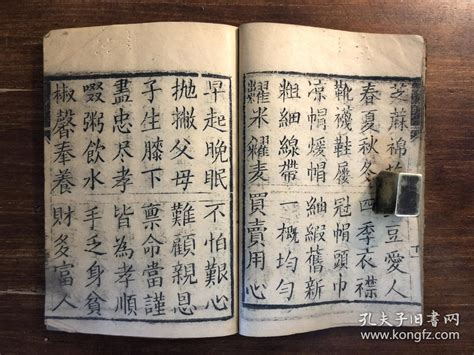 芝蔴綿豆愛人
春夏秋冬四季衣襟
靴襪鞋履冠帽頭巾
凉帽煖帽紬緞舊新
粗細線帶一概均勻
糶米糴麦買賣用心
早起晚眠不怕艱心
抛撇父母難顧親恩
子生膝下禀命當謹
盡忠尽孝皆為孝順
啜粥飲水手乏身貧
椒馨奉養財多富人
孔夫子旧书网
www.kongfz.com